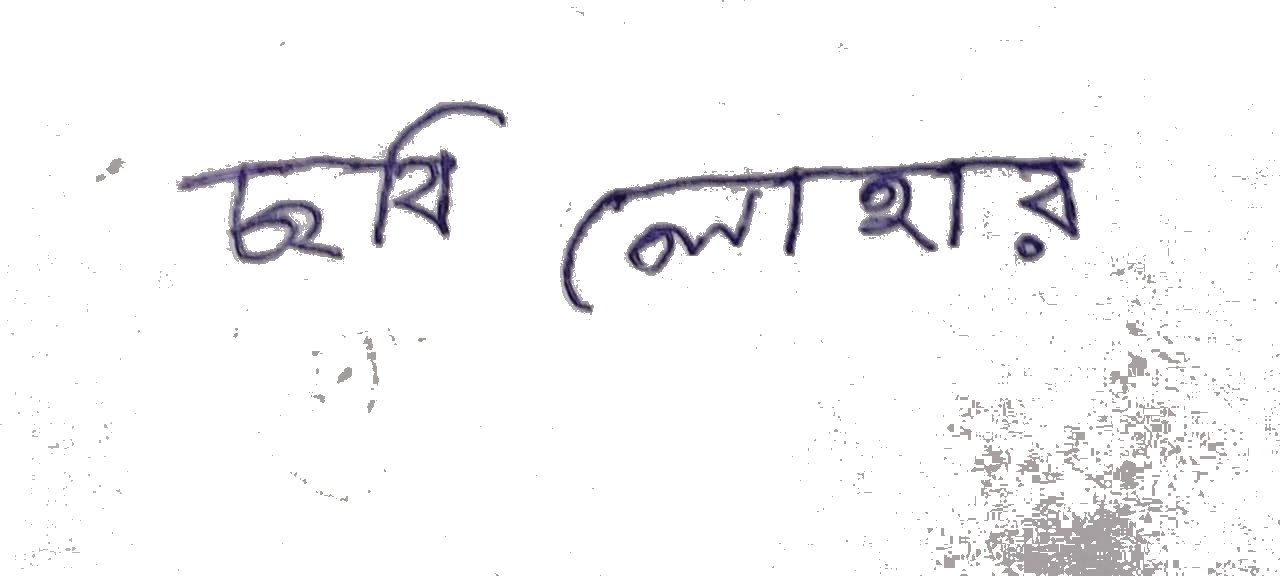 ছবি লোহার